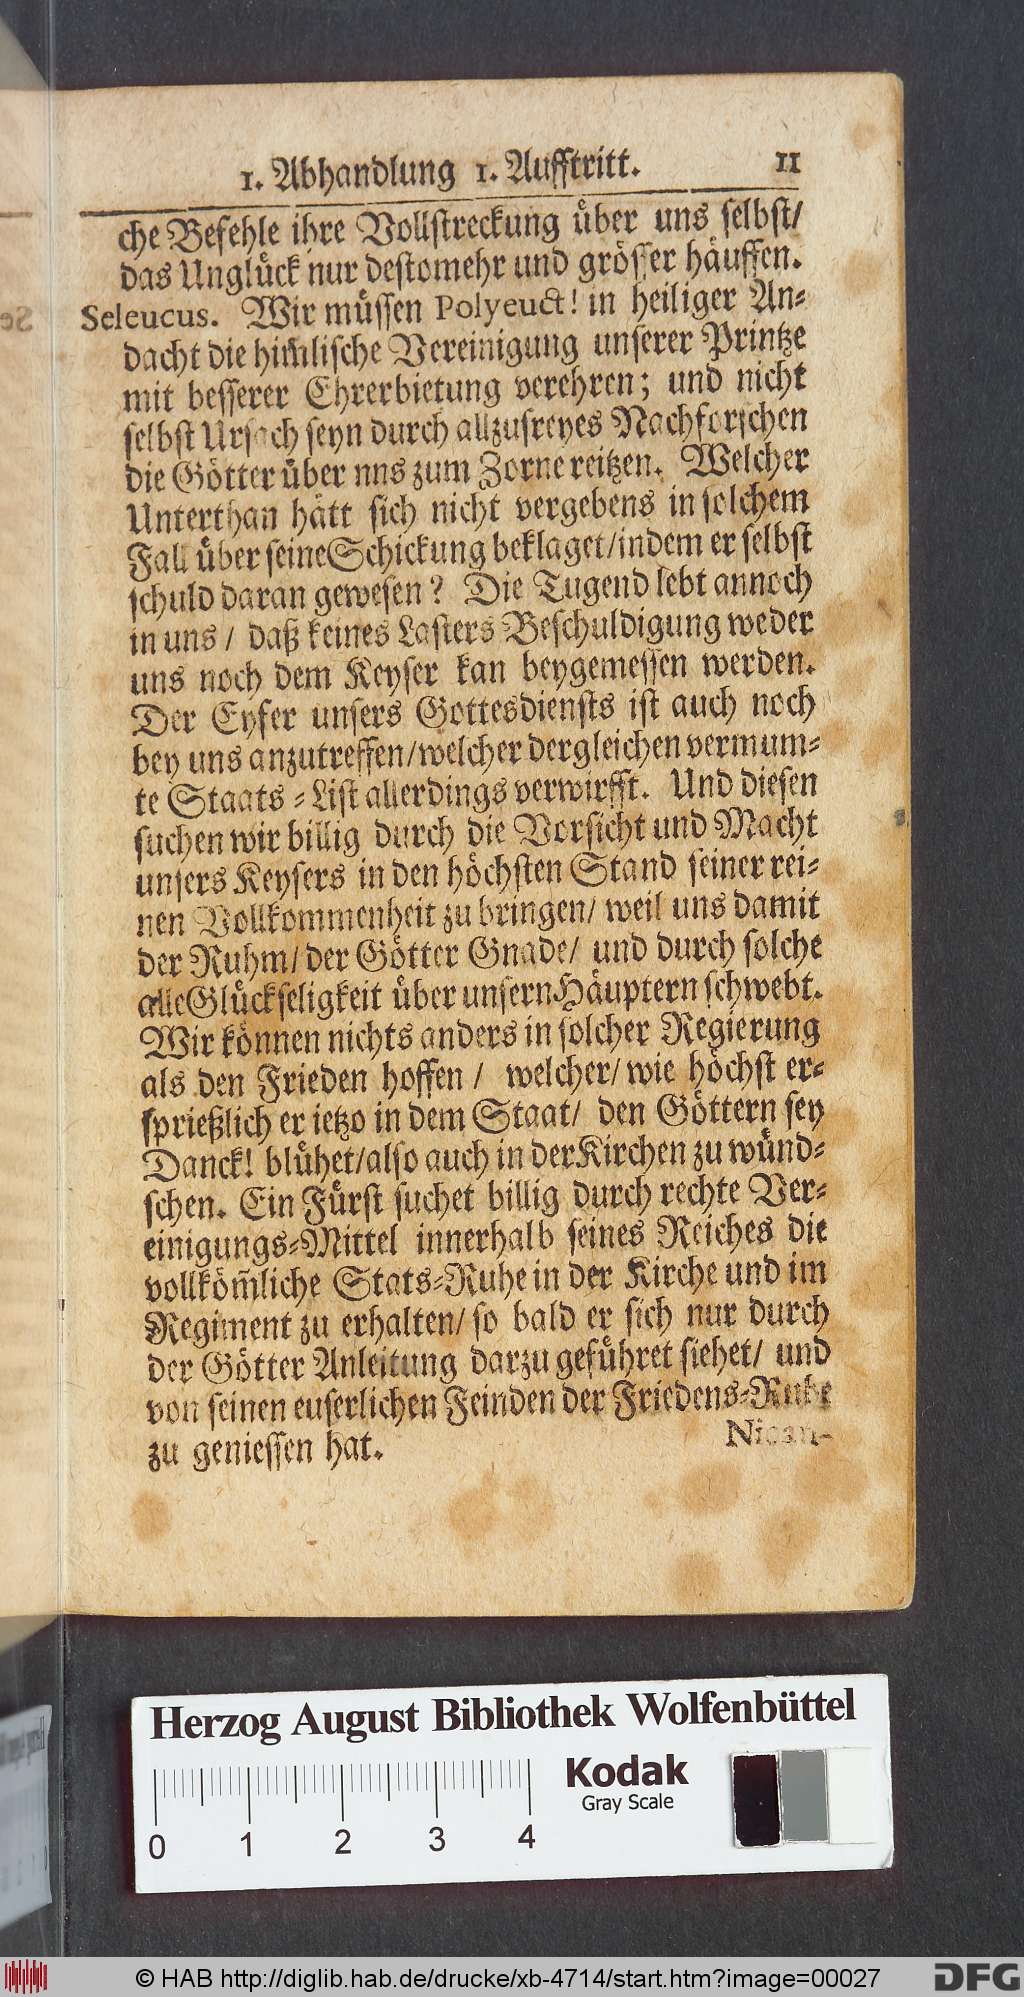 1. Abhandlung 1. Aufftritt. 11
che Befehle ihre Vollstreckung über uns selbst/
das Unglück nur destomehr und grösser häuffen.
Seleucus. Wir müssen Polyeuct! in heiliger An⸗
dacht die him̃lische Vereinigung unserer Printze
mit besserer Ehrerbietung verehren; und nicht
selbst Ursach seyn durch allzufreyes Nachforschen
die Götter über nns zum Zorne reitzen. Welcher
Unterthan hätt sich nicht vergebens in solchem
Fall über seine Schickung beklaget/ indem er selbst
schuld daran gewesen? Die Tugend lebt annoch
in uns / daß keines Lasters Beschuldigung weder
uns noch dem Keyser kan beygemessen werden.
Der Eyfer unsers Gottesdiensts ist auch noch
bey uns anzutreffen/ welcher dergleichen vermum⸗
te Staats⸗List allerdings verwirfft. Und diesen
suchen wir billig durch die Vorsicht und Macht
unsers Keysers in den höchsten Stand seiner rei⸗
nen Vollkommenheit zu bringen/ weil uns damit
der Ruhm/ der Götter Gnade/ und durch solche
alle Glückseligkeit über unsern Häuptern schwebt.
Wir können nichts anders in solcher Regierung
als den Frieden hoffen / welcher/ wie höchst er⸗
sprießlich er ietzo in dem Staat/ den Göttern sey
Danck! blühet/ also auch in der Kirchen zu wünd⸗
schen. Ein Fürst suchet billig durch rechte Ver⸗
einigungs⸗Mittel innerhalb seines Reiches die
vollköm̃liche Stats⸗Ruhe in der Kirche und im
Regiment zu erhalten/ so bald er sich nur durch
der Götter Anleitung darzu geführet siehet/ und
von seinen euserlichen Feinden der Friedens⸗Ruhe
zu geniessen hat.
Nican-
Herzog August Bibliothek Wolfenbüttel
Kodak
Gray Scale
0 1 2 3 4
© HAB http://diglib.hab.de/drucke/xb-4714/start.htm?image=00027
DFG